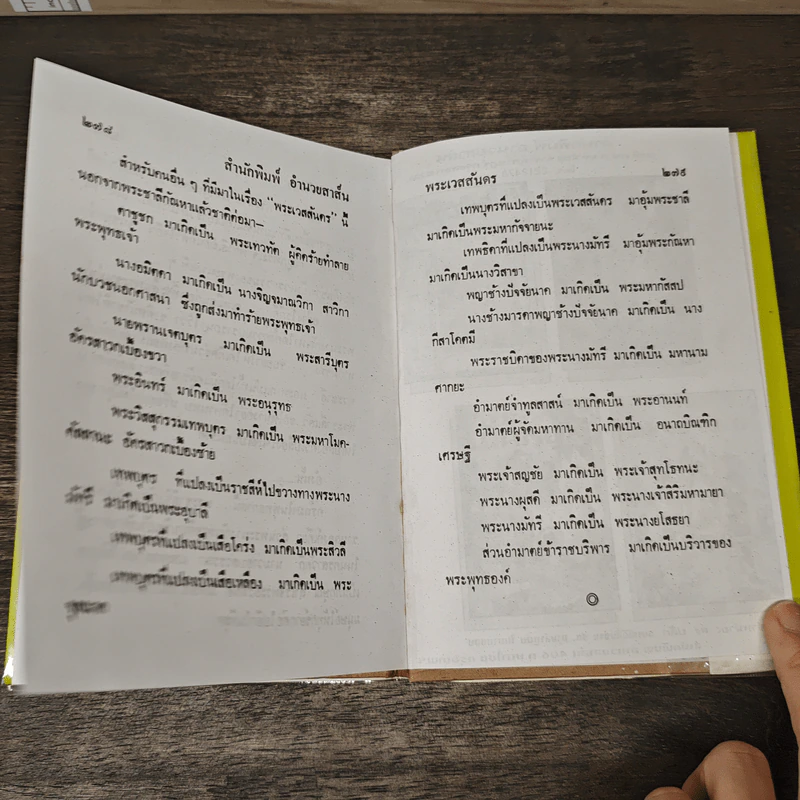 ๒๗๘
สำนักพิมพ์ อำนวยสาส์น
สำหรับคนอื่น ๆ ที่มีมาในเรื่อง "พระเวสสันดร" นี้
นอกจากพระชาลีกัณหาแล้วชาติต่อมา—
ตาชูชก มาเกิดเป็น พระเทวทัต ผู้คิดร้ายทำลาย
พระพุทธเจ้า
นางอมิตตา มาเกิดเป็น นางจิญจมาณวิกา สาวิกา
นักบวชนอกศาสนา ซึ่งถูกส่งมาทำร้ายพระพุทธเจ้า
นายพรานเจตบุตร มาเกิดเป็น พระสารีบุตร
อัครสาวกเบื้องขวา
พระอินทร์ มาเกิดเป็น พระอนุรุทธ
พระวิสสุกรรมเทพบุตร มาเกิดเป็น พระมหาโมค-
คัลลานะ อัครสาวกเบื้องซ้าย
เทพบุตร ที่แปลงเป็นราชสีห์ไปขวางทางพระนาง
มัทรี มาเกิดเป็นพระอุบาลี
เทพบุตรที่แปลงเป็นเสือโคร่ง มาเกิดเป็นพระสิวลี
เทพบุตรที่แปลงเป็นเสือเหลือง มาเกิดเป็น พระ
พระเวสสันดร
๒๗๙
เทพบุตรที่แปลงเป็นพระเวสสันดร มาอุ้มพระชาลี
มาเกิดเป็นพระมหากัจจายนะ
เทพธิดาที่แปลงเป็นพระนางมัทรี มาอุ้มพระกัณหา
มาเกิดเป็นนางวิสาขา
พญาช้างปัจจัยนาค มาเกิดเป็น พระมหากัสสป
นางช้างมารดาพญาช้างปัจจัยนาค มาเกิดเป็น นาง
กีสาโคตมี
พระราชบิดาของพระนางมัทรี มาเกิดเป็น มหานาม
ศากยะ
อำมาตย์จำทูลสาสน์ มาเกิดเป็น พระอานนท์
อำมาตย์ผู้จัดมหาทาน มาเกิดเป็น อนาถบิณฑิก
เศรษฐี
พระเจ้าสญชัย มาเกิดเป็น พระเจ้าสุทโธทนะ
พระนางผุสดี มาเกิดเป็น พระนางเจ้าสิริมหามายา
พระนางมัทรี มาเกิดเป็น พระนางยโสธยา
ส่วนอำมาตย์ข้าราชบริพาร มาเกิดเป็นบริวารของ
พระพุทธองค์